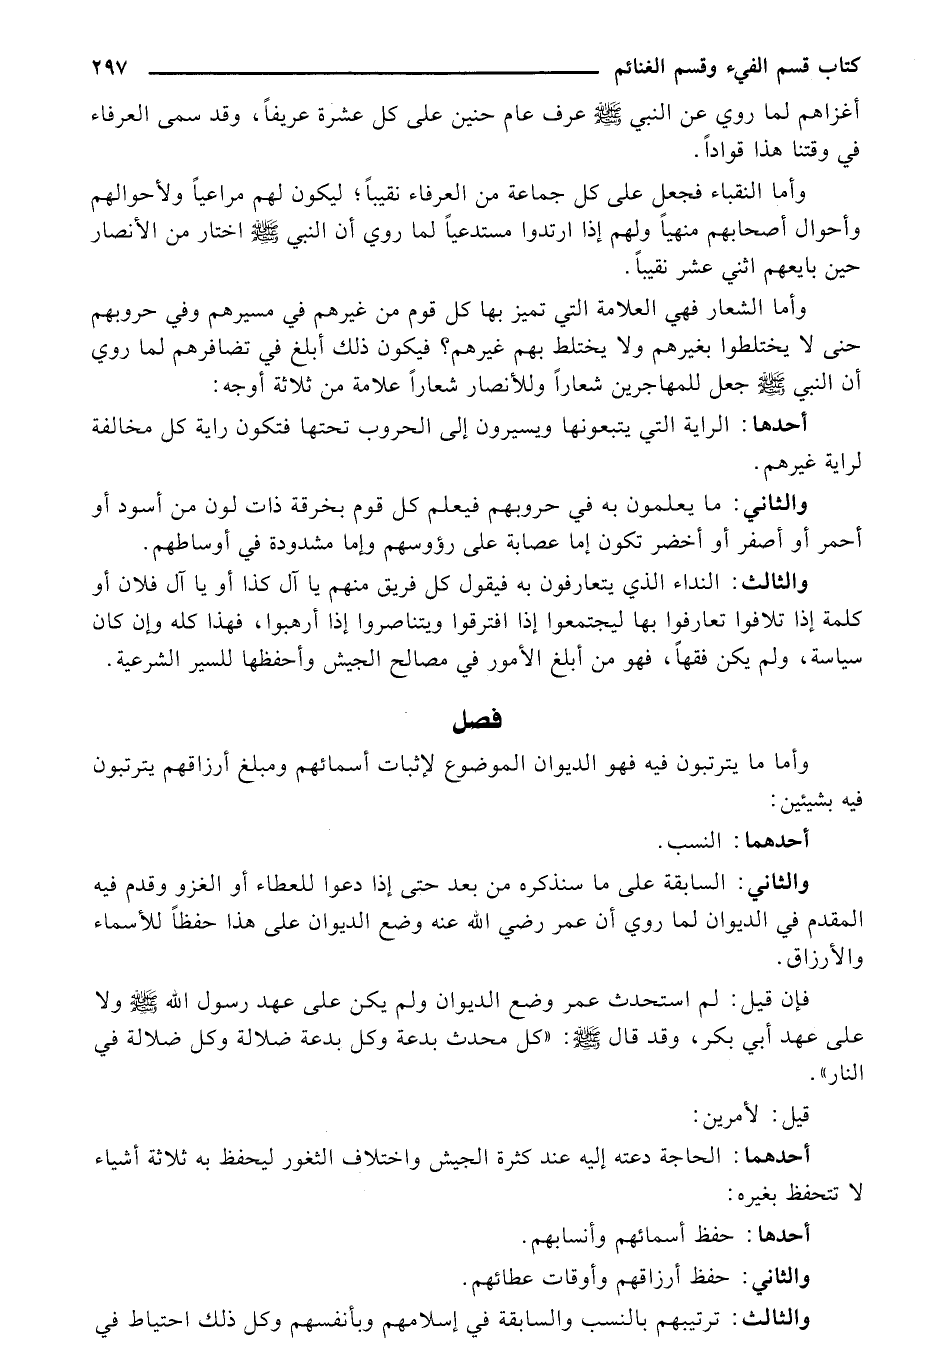 كتاب قسم الفيء وقسم الغنائم ٢٩٧
أغزاهم لما روي عن النبي ﷺ عرف عام حنين على كل عشرة عريفاً، وقد سمى العرفاء
في وقتنا هذا قواداً.
وأما النقباء فجعل على كل جماعة من العرفاء نقيباً؛ ليكون لهم مراعياً ولأحوالهم
وأحوال أصحابهم منهياً ولهم إذا ارتدوا مستدعياً لما روي أن النبي ﷺ اختار من الأنصار
حين بايعهم اثني عشر نقيباً.
وأما الشعار فهي العلامة التي تميز بها كل قوم من غيرهم في مسيرهم وفي حروبهم
حتى لا يختلطوا بغيرهم ولا يختلط بهم غيرهم؟ فيكون ذلك أبلغ في تضافرهم لما روي
أن النبي ﷺ جعل للمهاجرين شعاراً وللأنصار شعاراً علامة من ثلاثة أوجه:
أحدها: الراية التي يتبعونها ويسيرون إلى الحروب تحتها فتكون راية كل مخالفة
لراية غيرهم.
والثاني: ما يعلمون به في حروبهم فيعلم كل قوم بخرقة ذات لون من أسود أو
أحمر أو أصفر أو أخضر تكون إما عصابة على رؤوسهم وإما مشدودة في أوساطهم.
والثالث: النداء الذي يتعارفون به فيقول كل فريق منهم يا آل كذا أو يا آل فلان أو
كلمة إذا تلافوا تعارفوا بها ليجتمعوا إذا افترقوا ويتناصروا إذا أرهبوا، فهذا كله وإن كان
سياسة، ولم يكن فقهاً، فهو من أبلغ الأمور في مصالح الجيش وأحفظها للسير الشرعية.
فصل
وأما ما يترتبون فيه فهو الديوان الموضوع لإثبات أسمائهم ومبلغ أرزاقهم يترتبون
فيه بشيئين:
أحدهما: النسب.
والثاني: السابقة على ما سنذكره من بعد حتى إذا دعوا للعطاء أو الغزو وقدم فيه
المقدم في الديوان لما روي أن عمر رضي الله عنه وضع الديوان على هذا حفظاً للأسماء
والأرزاق.
فإن قيل: لم استحدث عمر وضع الديوان ولم يكن على عهد رسول الله ﷺ ولا
على عهد أبي بكر، وقد قال ﷺ: «كل محدث بدعة وكل بدعة ضلالة وكل ضلالة في
النار».
قيل: لأمرين:
أحدهما: الحاجة دعته إليه عند كثرة الجيش واختلاف الثغور ليحفظ به ثلاثة أشياء
لا تتحفظ بغيره:
أحدها: حفظ أسمائهم وأنسابهم.
والثاني: حفظ أرزاقهم وأوقات عطائهم.
والثالث: ترتيبهم بالنسب والسابقة في إسلامهم وبأنفسهم وكل ذلك احتياط في